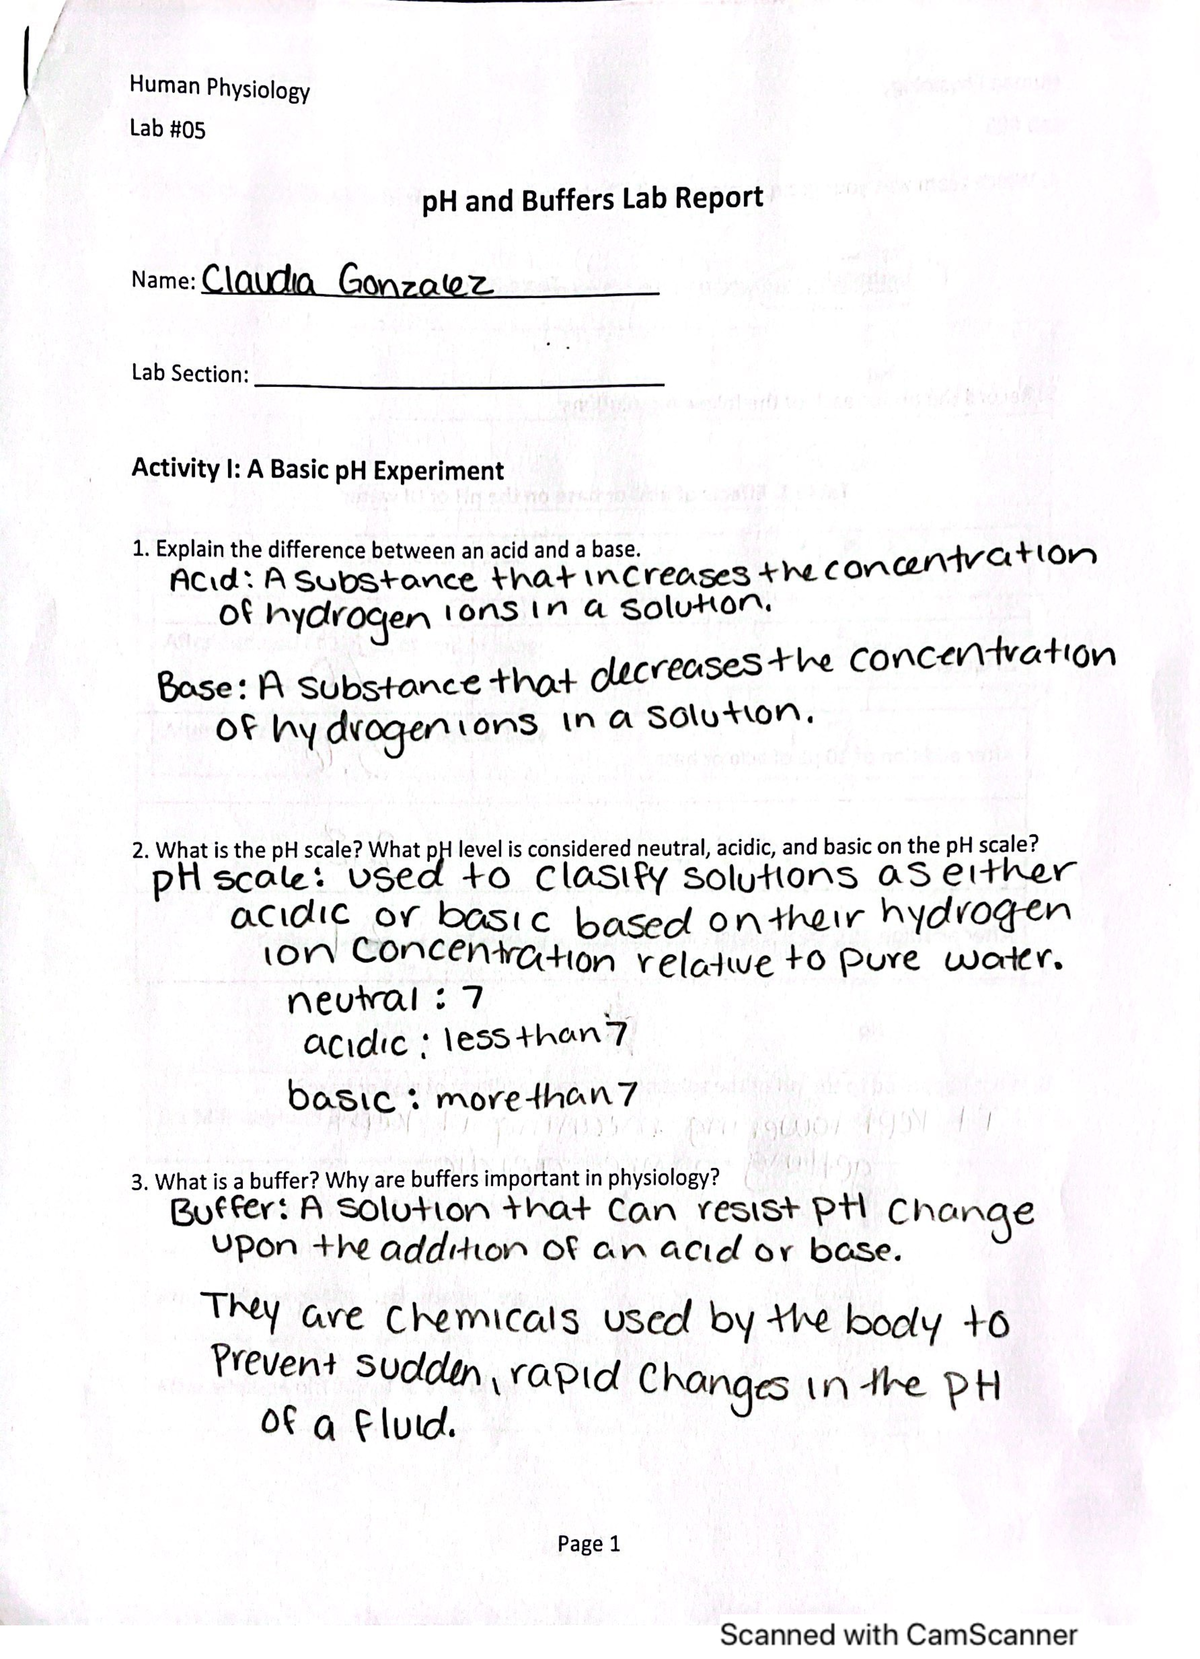 Human Physiology
Lab #05
pH and Buffers Lab Report
Name: Claudia Gonzalez
Lab Section:
Activity I: A Basic pH Experiment
1. Explain the difference between an acid and a base.
Acid: A substance that increases the concentration
of hydrogen ions in a solution.
Base: A substance that decreases the concentration
of hydrogen ions in a solution.
2. What is the pH scale? What pH level is considered neutral, acidic, and basic on the pH scale?
pH scale: used to clasify solutions as either
acidic or basic based on their hydrogen
ion concentration relative to pure water.
neutral: 7
acidic: less than 7
basic: more than 7
3. What is a buffer? Why are buffers important in physiology?
Buffer: A solution that can resist pH change
upon the addition of an acid or base.
They are chemicals used by the body to
prevent sudden, rapid changes in the pH
of a fluid.
Page 1
Scanned with CamScanner